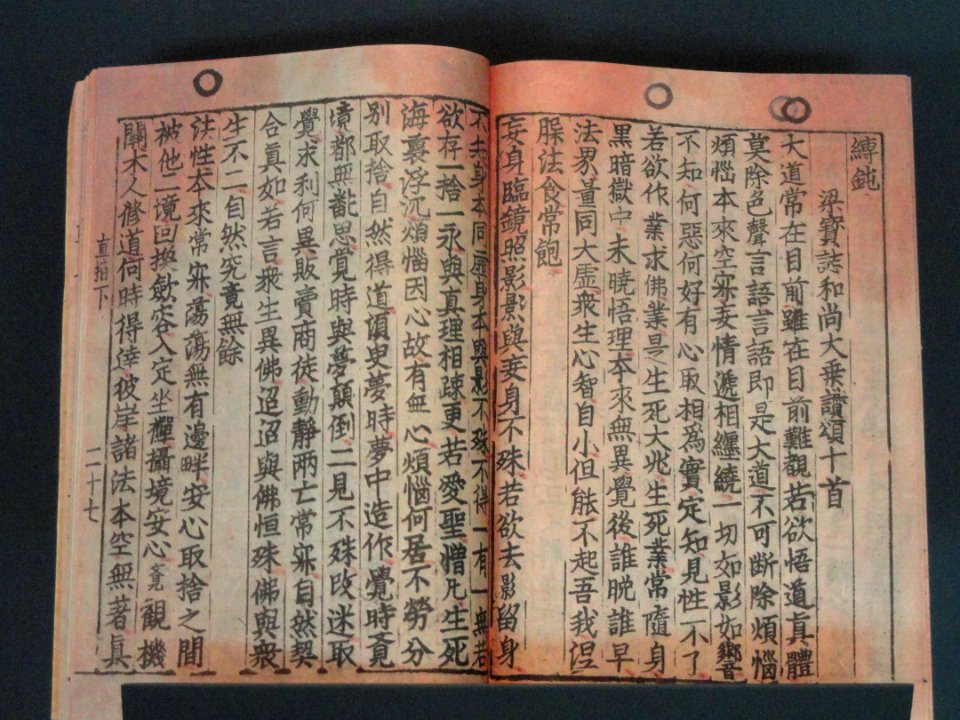 縛鈍
梁寶誌和尚大乗讃頌十首
大道常在目前雖在目前難覩若欲悟道真體
莫除色聲言語言語即是大道不可断除煩惱
煩惱本來空寂妄情遞相纏繞一切如影如響
不知何惡何好有心取相爲實定知見性不了
若欲作業求佛業是生死大兆生死業常隨身
黑暗獄中未曉悟理本來無異覺後誰晚誰早
法界量同大虛衆生心智自小但能不起吾我涅
槃法食常飽
妄身臨鏡照影影與妄身不殊若欲去影留身
不知身本同虛身本與影不殊不得一有一無若
欲存一捨一永與真理相疎更若愛聖憎凡生死
海裏浮沉煩惱因心故有無心煩惱何居不勞分
別取捨自然得道須臾夢時夢中造作覺時覺
境都無飜思覺時與夢顛倒二見不殊改迷取
覺求利何異販賣商徒動静兩亡常寂自然契
合真如若言衆生異佛迢迢與佛恒殊佛與衆
生不二自然究竟無餘
法性本來常寂蕩蕩無有邊畔安心取捨之間
被他二境回換斂容入定坐禪攝境安心覺觀機
關木人修道何時得達彼岸諸法本空無著真
直指下
二十七